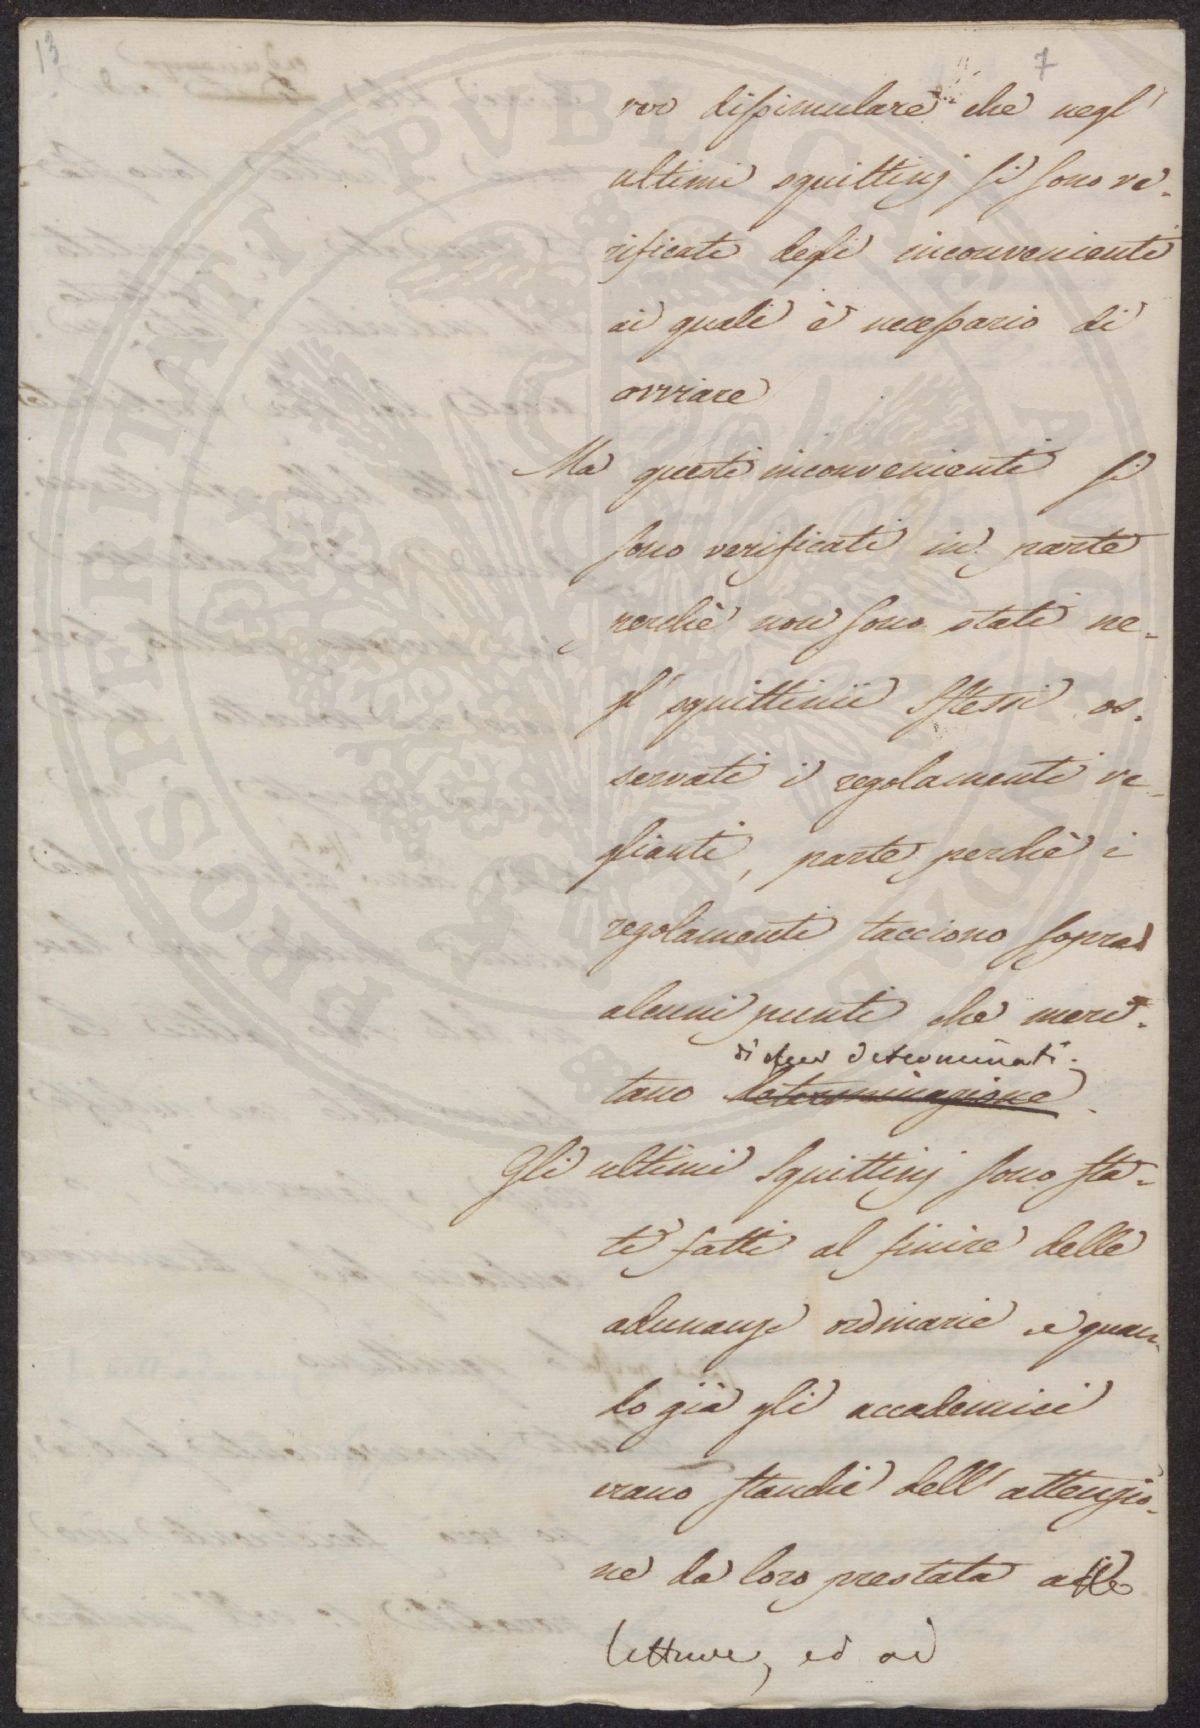 13
7
vo dissimulare che negl'
ultimi squittinj si sono ve-
rificati degli inconvenienti
ai quali è necessario di
ovviare
Ma questi inconvenienti si
sono verificati in parte
perchè non sono stati ne-
gl' squittinii stessi os-
servati i regolamenti ve-
glianti, parte perchè i
regolamenti tacciono sopra
alcuni punti che meri-
di esser determinati.
tano determinazione.
Gli ultimi squittinj sono sta-
ti fatti al finire delle
adunanze ordinarie e quan-
do già gli accademici
erano stanchi dell' attenzio-
ne da loro prestata alle
letture, ed ad
PROSPERITATI PVBLICAE AVGENDAE